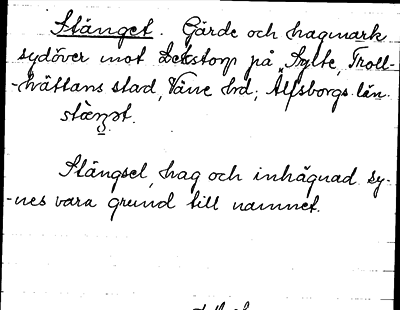 Stänget. Gärde och hagmark
sydöver mot Lekstorp på Sylte, Troll-
-hättans stad, Väne hd, Älfsborgs län.

Stängsel, hag och inhägnad sy-
-nes vara grund till namnet.